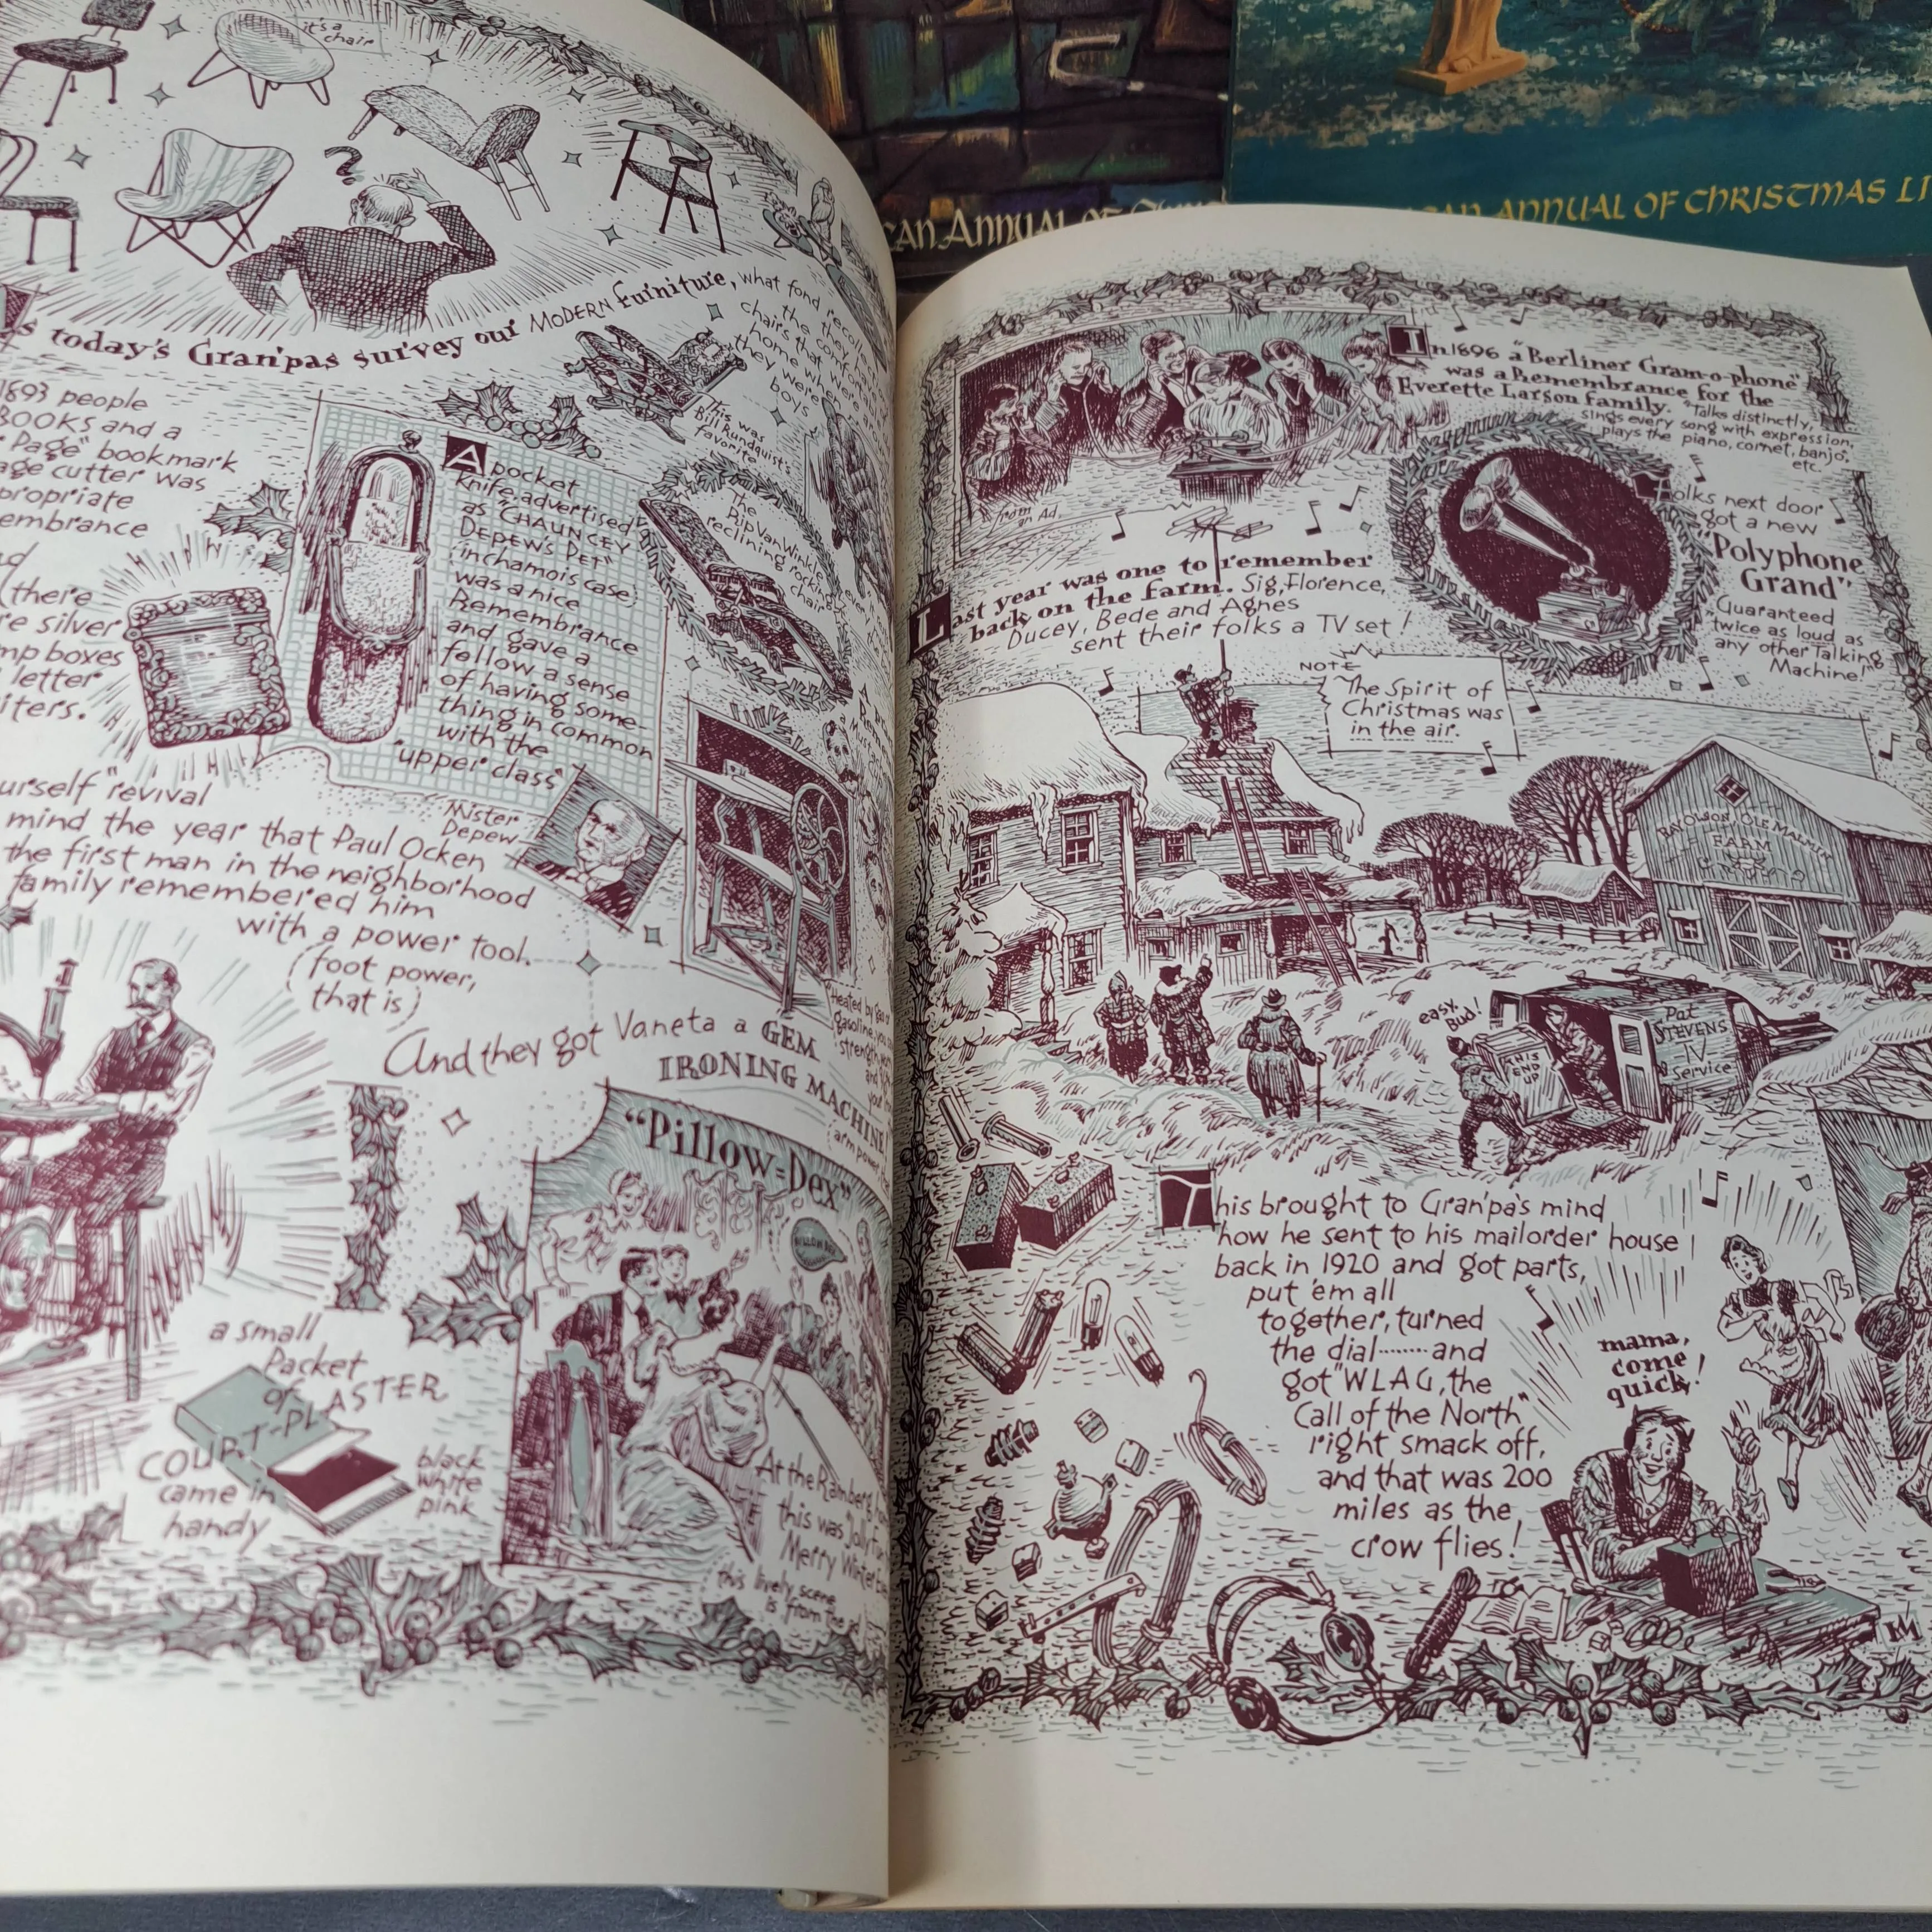 it's a
chair
s today's Gran'pas survey our MODERN furniture, what fond
the
chairs that
home
they were
boys
this was
Bill Rundquist's
favorite
1893 people
BOOKS and a
Page" bookmark
age cutter was
propriate
embrance
(there
re silver
mp boxes
letter
iters.
A pocket
knife, advertised
as "CHAUNCEY
DEPEW'S PET"
(in chamois case)
was a nice
Remembrance
and gave a
fellow a sense
of having some-
thing in common
with the
"upper class"
The
Rip Van Winkle
reclining rocking
chair
Mister
Depew
urself" revival
mind the year that Paul Ocken
the first man in the neighborhood
family remembered him
with a power tool.
(foot power,
that is)
And they got Vaneta a GEM
IRONING MACHINE!
arm power
Heated by gas or
gasoline
"Pillow-Dex"
PILLOW DEX
a small
Packet
of
COURT-PLASTER
came in
handy
black
white
pink
At the Ramberg
this was "Jolly
Merry Winter
this lively scene
is from the
CAN ANNUAL OF
ANNUAL OF CHRISTMAS LI
In 1896 a "Berliner Gram-o-phone"
was a Remembrance for the
Everette Larson family. "Talks distinctly,
sings every song with expression,
plays the piano, cornet, banjo,
etc.
from
an Ad.
Folks next door
got a new
"Polyphone
Grand"
"Guaranteed
twice as loud as
any other Talking
Machine!"
Last year was one to remember
back on the farm. Sig, Florence,
Ducey, Bede and Agnes
sent their folks a TV set!
NOTE
The Spirit of
Christmas was
in the air.
RAY OLSON, OLE MALMIN
FARM
easy,
Bud!
THIS
END
UP
Pat
STEVENS
TV
Service
This brought to Gran'pa's mind
how he sent to his mailorder house
back in 1920 and got parts,
put 'em all
together, turned
the dial........and
got "WLAG, the
Call of the North"
right smack off,
and that was 200
miles as the
crow flies!
mama,
come
quick!